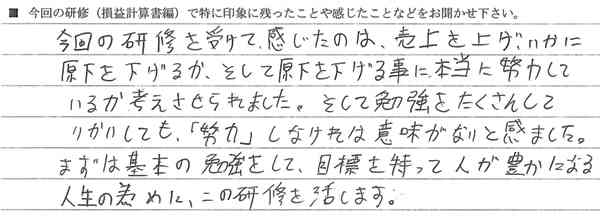 ■ 今回の研修（損益計算書編）で特に印象に残ったことや感じたことなどをお聞かせ下さい。
今回の研修を受けて、感じたのは、売上を上げ、いかに
原下を下げるか、そして原下を下げる事に、本当に努力して
いるか考えさせられました。そして勉強をたくさんして
りかいしても、「努力」しなければ意味がないと感ました。
まずは基本の勉強をして、目標を持って人が豊かになる
人生の為めに、この研修を活します。